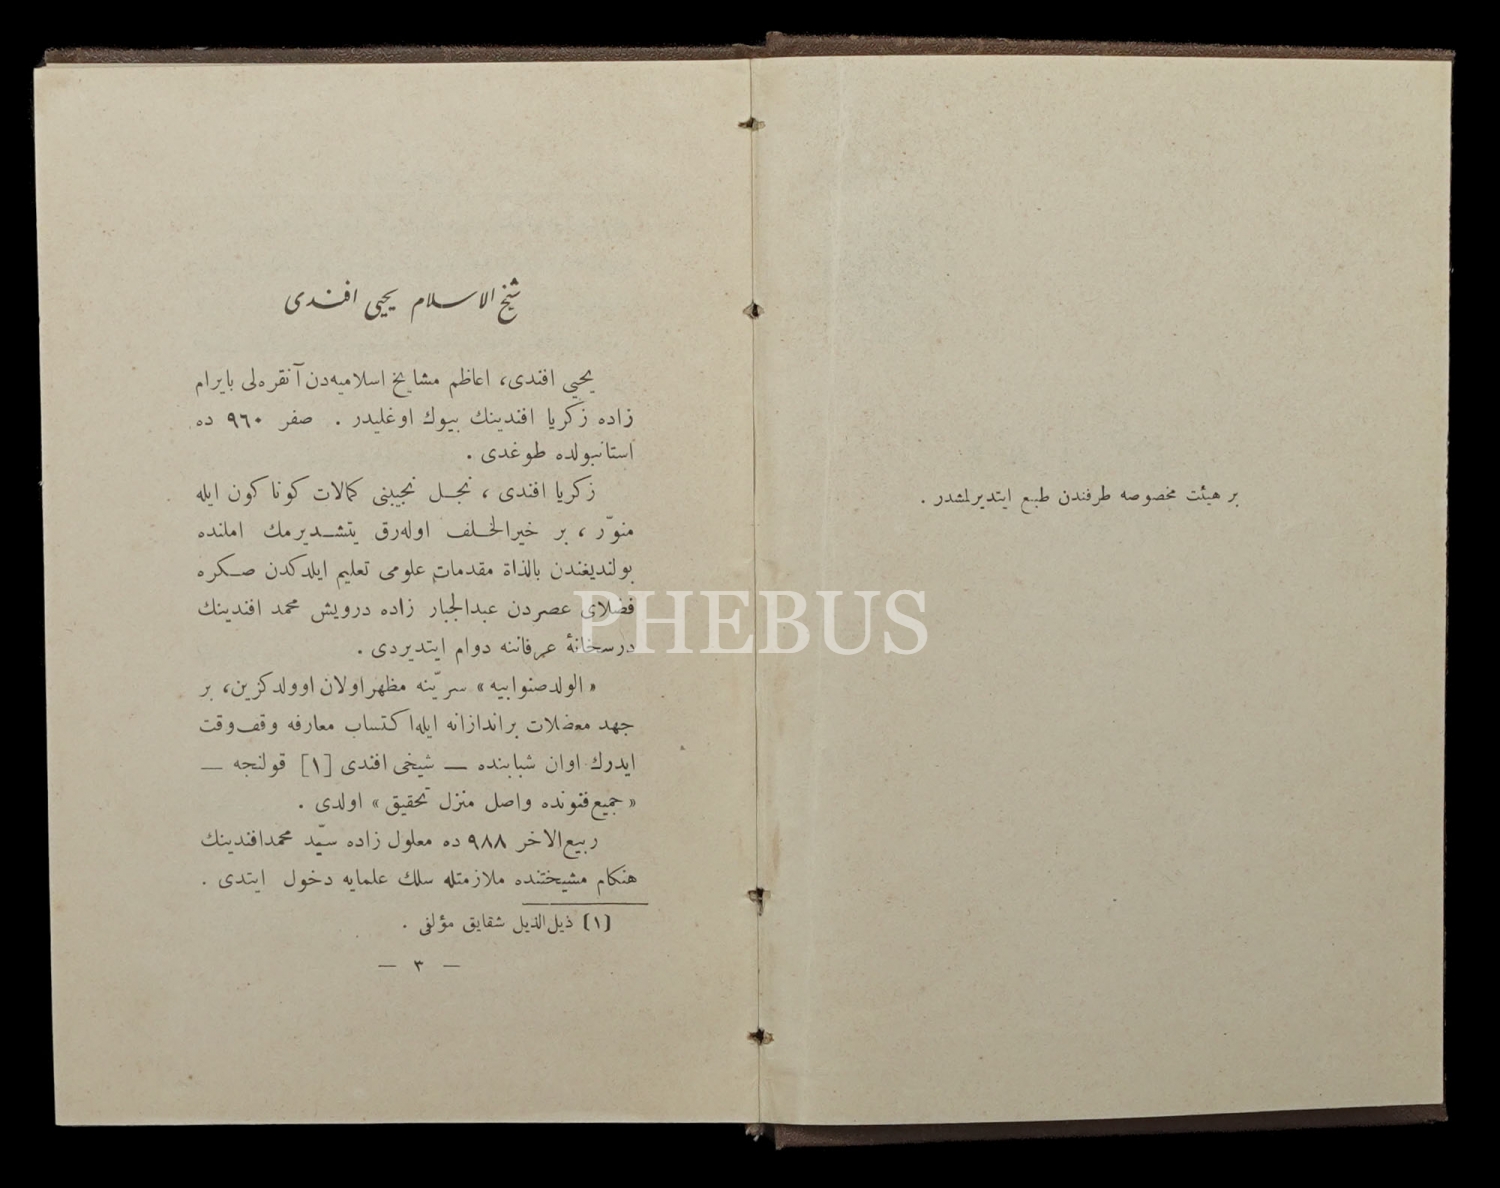 بر هيئت مخصوصه طرفندن طبع ايتديرلمشدر .
شيخ الاسلام يحيى افندى
يحيى افندى، اعاظم مشايخ اسلاميه‌دن آنقره‌لى بايرام
زاده زكريا افندينك بيوك اوغليدر . صفر ٩٦٠ ده
استانبولده طوغدى .
زكريا افندى ، نجل نجيبنى كمالات كوناكون ايله
منوّر ، بر خيرالخلف اوله‌رق يتشديرمك املنده
بولنديغندن بالذاة مقدمات علومى تعليم ايلدكدن صكره
فضلاى عصردن عبدالجبار زاده درويش محمد افندينك
درسخانهٔ عرفاننه دوام ايتديردى .
« الولدصنوابيه » سرّينه مظهراولان اوولدكزين، بر
جهد معضلات براندازانه ايله‌اكتساب معارفه وقف‌وقت
ايدرك اوان شبابنده — شيخى افندى [١] قولنجه —
« جميع‌فنونده واصل منزل تحقيق » اولدى .
ربيع‌الاخر ٩٨٨ ده معلول زاده سيّد محمدافندينك
هنكام مشيختنده ملازمتله سلك علمايه دخول ايتدى .
(١) ذيل‌الذيل شقايق مؤلفى .
— ٣ —
PHEBUS